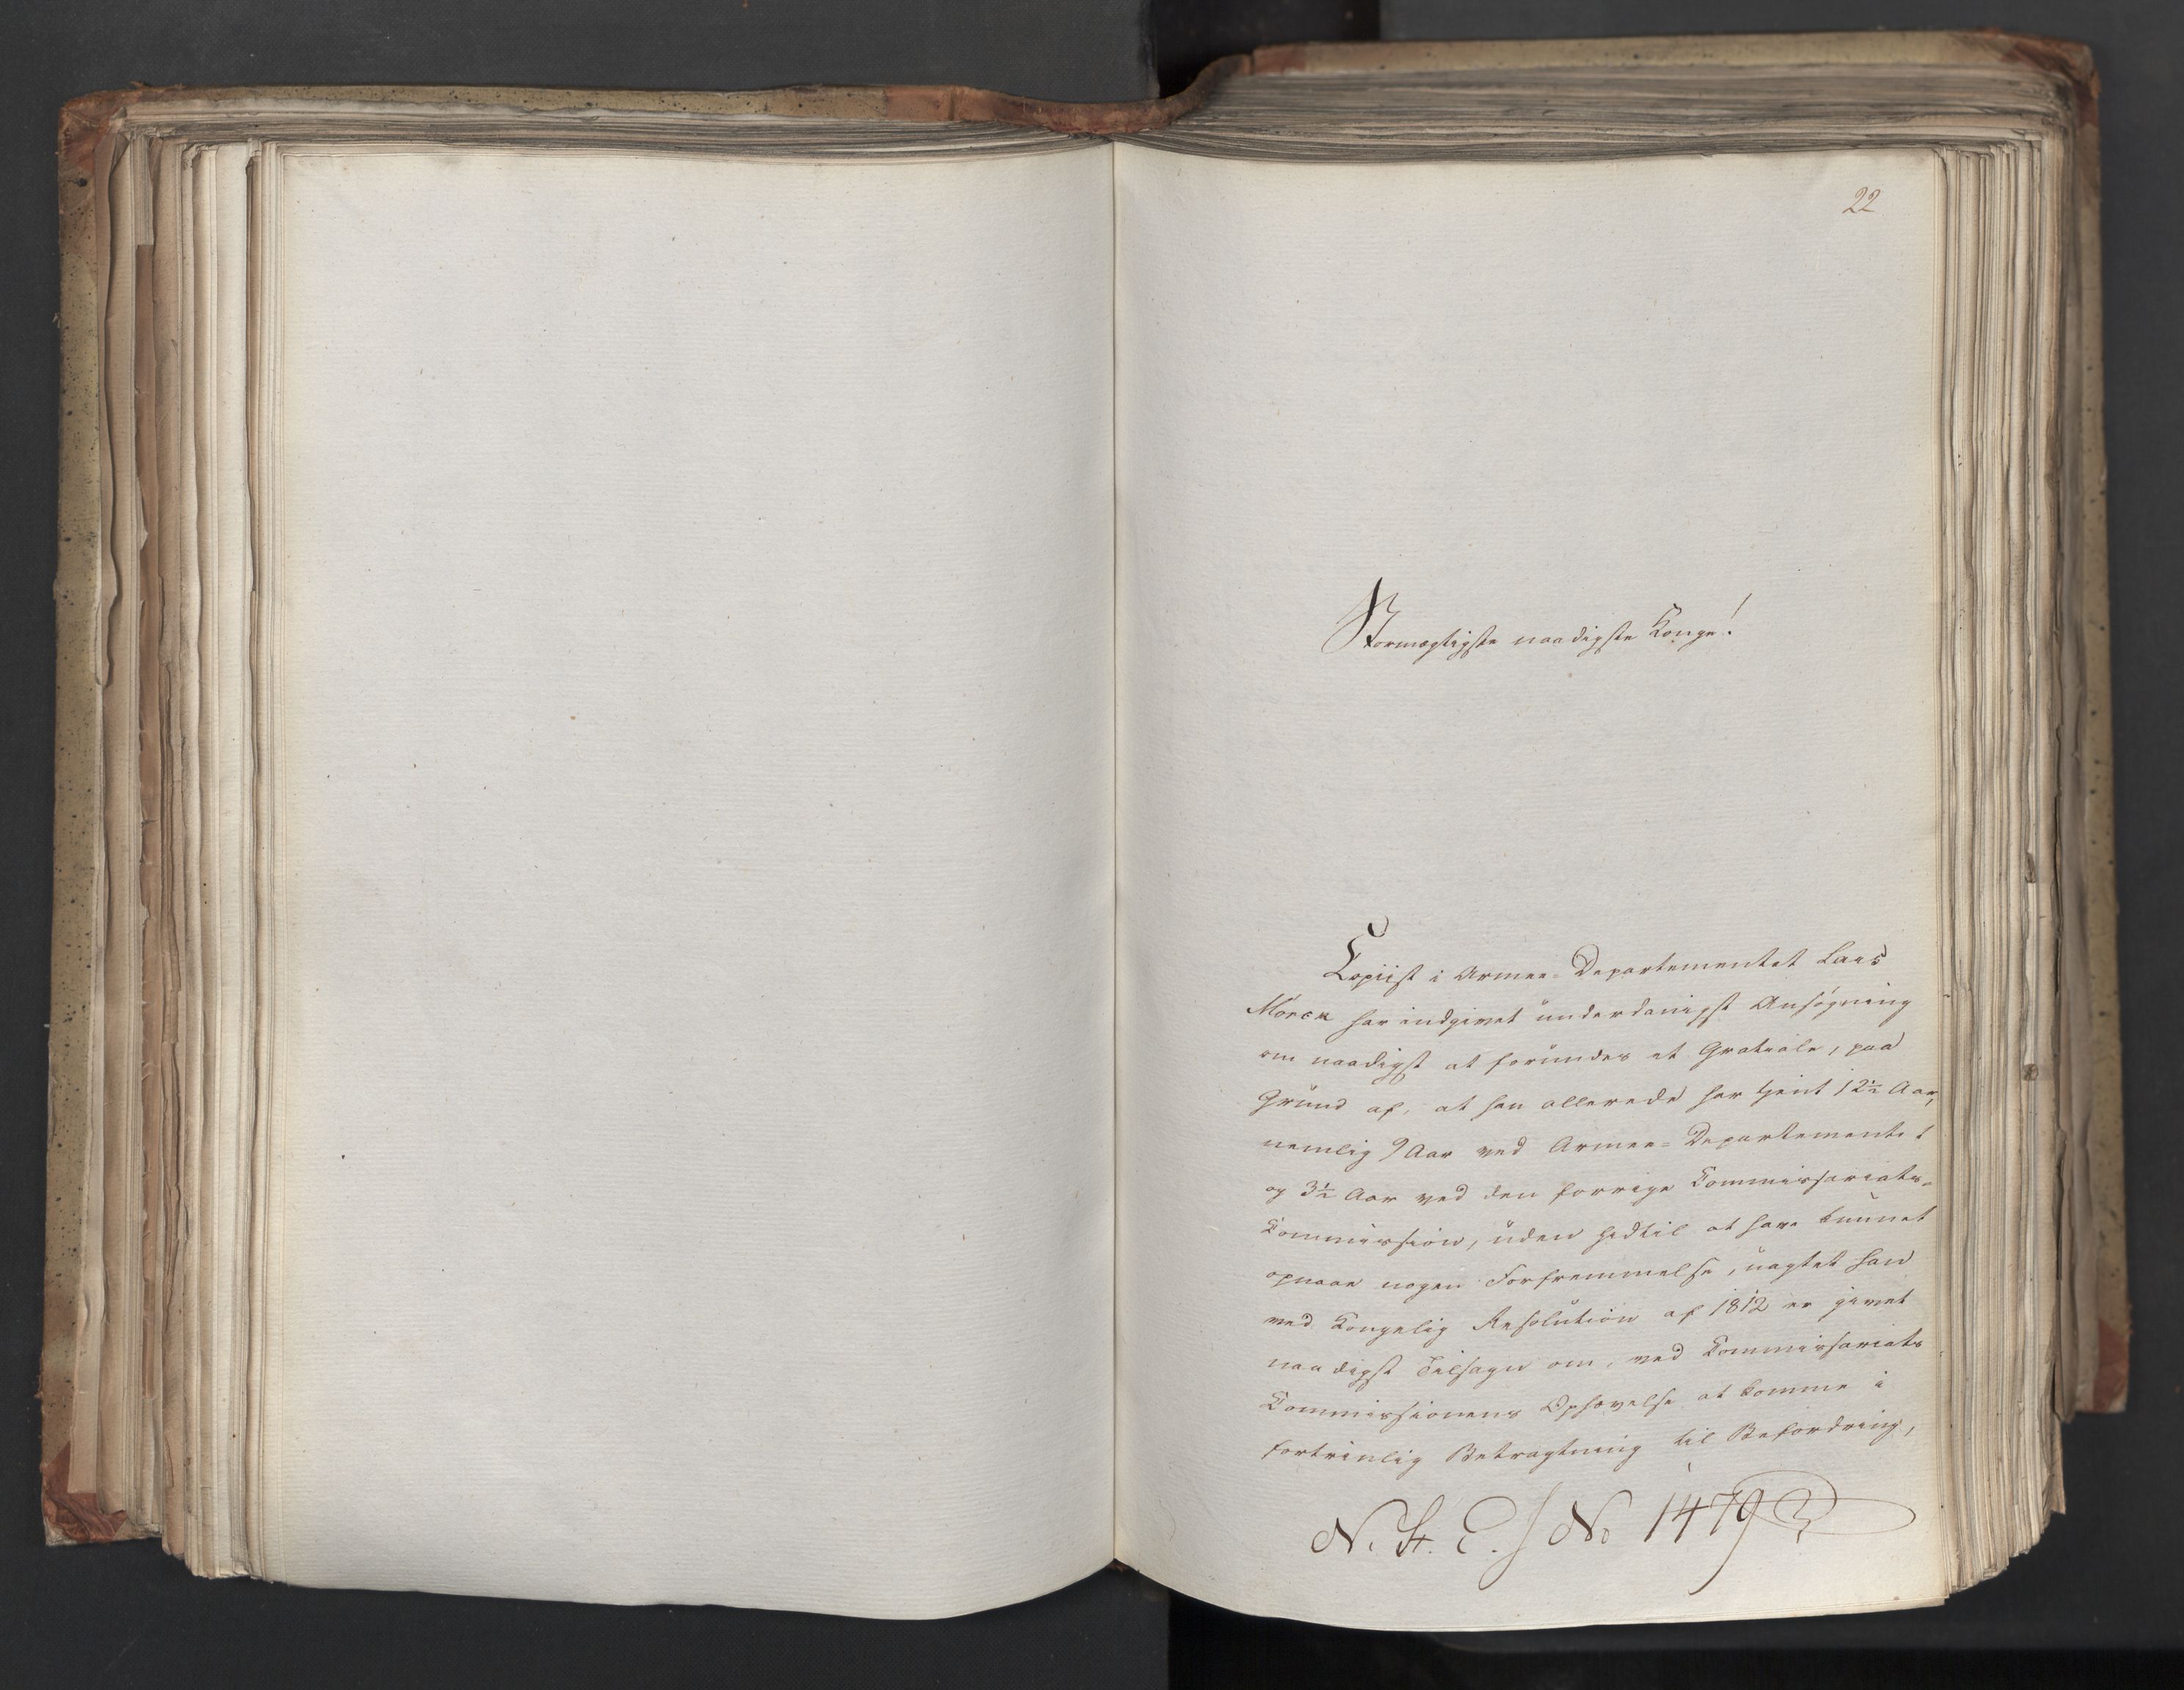 22
Stormægtigste naadigste Konge!
Copiist i Armee-Departementet Lars
Mørck har indgivet underdanigst Ansøgning
om naadigst at forundes et Gratiale, paa
Grund af, at han allerede har tjent 12½ Aar,
nemlig 9 Aar ved Armee-Departementet
og 3½ Aar ved den forrige Commissariats-
Commission, uden hidtil at have kunnet
opnaae nogen Forfremmelse, uagtet han
ved Kongelig Resolution af 1812 er givet
naadigst Tilsagn om, ved Commissariats
Commissionens Ophævelse at komme i
fortrinlig Betragtning til Befordring,
N. St. E. J No 1479